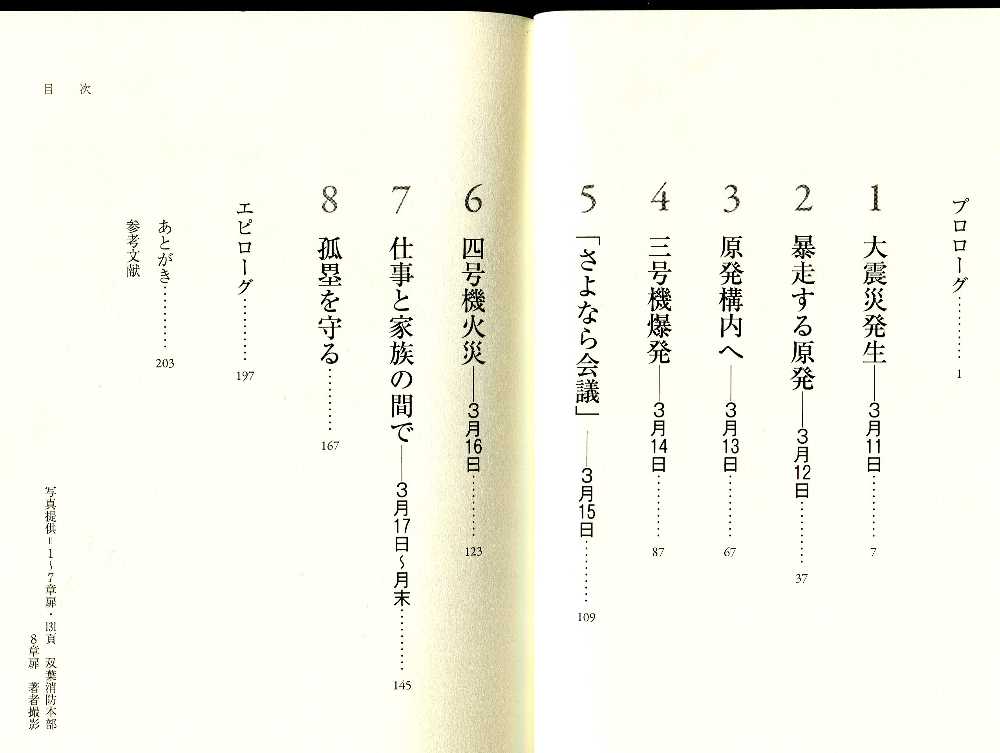 プロローグ………1
1 大震災発生――3月11日………7
2 暴走する原発――3月12日………37
3 原発構内へ――3月13日………67
4 三号機爆発――3月14日………87
5 「さよなら会議」――3月15日………109
6 四号機火災――3月16日………123
7 仕事と家族の間で――3月17日〜月末………145
8 孤塁を守る………167
エピローグ………197
あとがき………203
参考文献
目 次
写真提供=1〜7章扉・131頁 双葉消防本部
8章扉 著者撮影